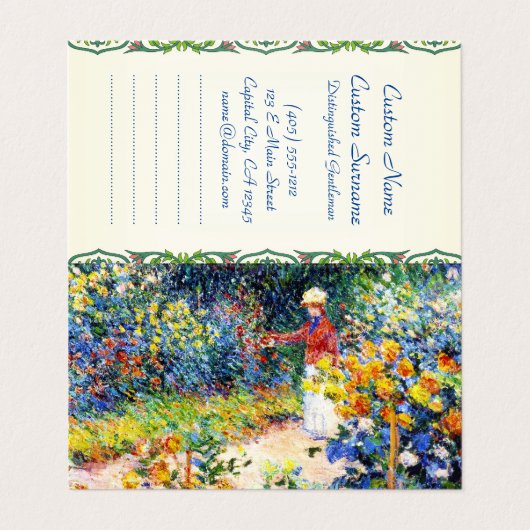 Custom Name
Custom Surname
Distinguished Gentleman
(405) 555-1212
123 E Main Street
Capital City, CA 12345
name@domain.com